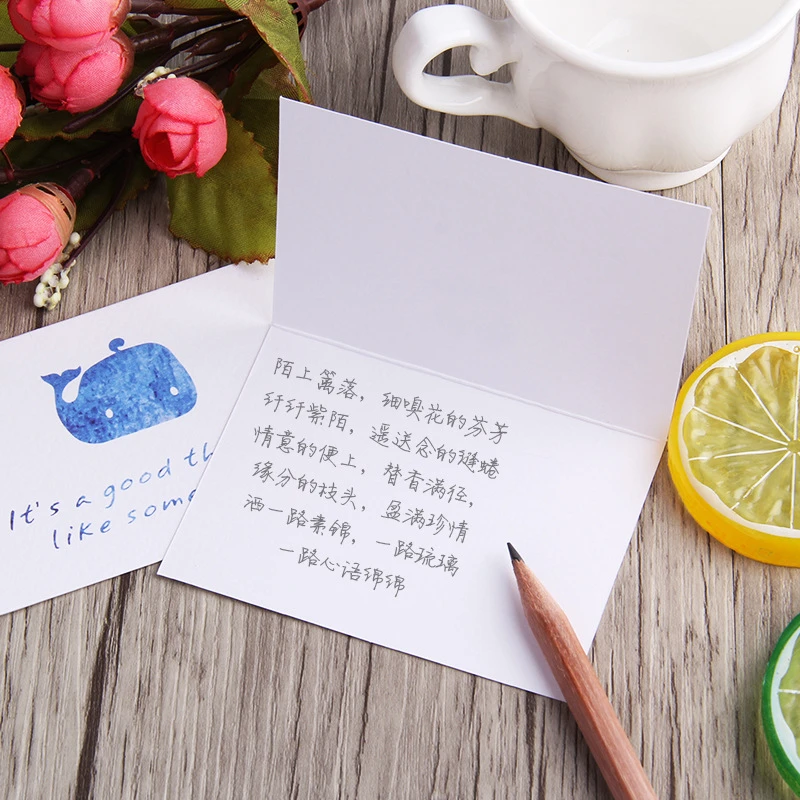 It's a good th
like some
陌上篱落，细嗅花的芬芳
纤纤紫陌，遥送念的缱绻
情意的便上，替香满径，
缘分的枝头，盈满珍情
洒一路素锦，一路琉璃
一路心语绵绵